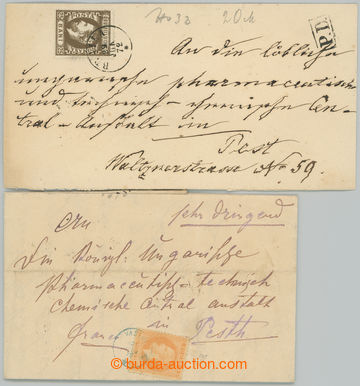 No 32 20 M
P.D.
An die löbliche
ungarische pharmaceutische
und technisch-chemische Cen-
tral-Anstalt in
Pest
Waitznerstrasse No 59.
sehr dringend
Die Königl. Ungarische
pharmaceutisch-technisch
chemische Central anstalt
in Pesth
© www.burda-auction.com